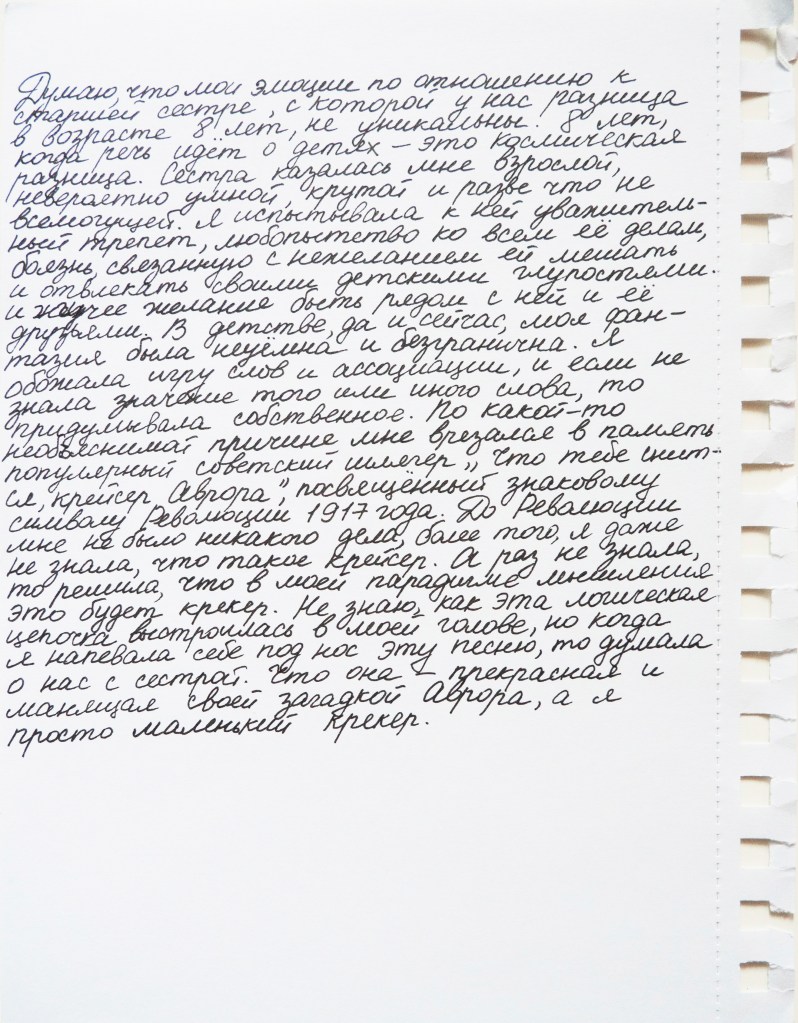 Думаю, что мои эмоции по отношению к
старшей сестре, с которой у нас разница
в возрасте 8 лет, не уникальны. 8 лет,
когда речь идёт о детях – это космическая
разница. Сестра казалась мне взрослой,
невероятно умной, крутой и разве что не
всемогущей. Я испытывала к ней уважитель-
ный трепет, любопытство ко всем её делам,
боязнь, связанную с нежеланием ей мешать
и отвлекать своими детскими глупостями.
и жгучее желание быть рядом с ней и её
друзьями. В детстве, да и сейчас, моя фан-
тазия была неуёмна и безгранична. Я
обожала игру слов и ассоциации, и если не
знала значение того или иного слова, то
придумывала собственное. По какой-то
необъяснимой причине мне врезался в память
популярный советский шлягер „Что тебе снит-
ся, крейсер Аврора”, посвящённый знаковому
символу Революции 1917 года. До Революции
мне не было никакого дела, более того, я даже
не знала, что такое крейсер. А раз не знала,
то решила, что в моей парадигме мышления
это будет крекер. Не знаю, как эта логическая
цепочка выстроилась в моей голове, но когда
я напевала себе под нос эту песню, то думала
о нас с сестрой. Что она – прекрасная и
манящая своей загадкой Аврора, а я
просто маленький крекер.